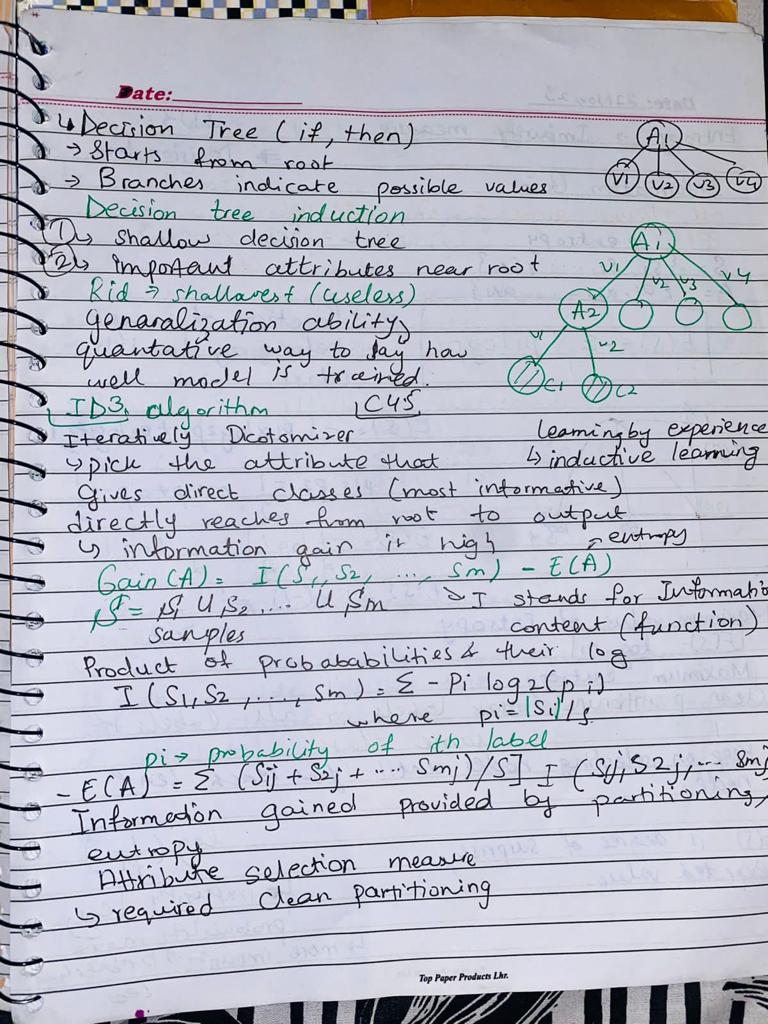 Date:
↳ Decision Tree (if, then)
→ Starts from root
→ Branches indicate possible values
A1
V1 V2 V3 V4
Decision tree induction
① ↳ shallow decision tree
② ↳ important attributes near root
A1
V1 V2 V3 V4
A2
V1 V2
C1 C2
Rid → shallowest (useless)
genaralization ability,
quantative way to say how
well model is trained.
ID3 algorithm C45
Iteratively Dcotomizer
learning by experience
↳ inductive learning
↳ pick the attribute that
Gives direct classes (most informative)
directly reaches from root to output
↳ information gain it high
→ entropy
Gain(A) = I(S1, S2, ..., Sm) - E(A)
S = S1 U S2 .... U Sm
samples
↘ I stands for Informatio
content (function)
Product of probababilities & their log
I (S1, S2, ..., Sm) = Σ - Pi log2(pi)
where pi = |Si|/s
pi → probability of ith label
- E(A) = Σ (Sij + S2j + ... Smj)/S] I (Sij, S2j, ... Smj
Information gained provided by partitioning,
entropy
Attribute selection measure
↳ required clean partitioning
Top Paper Products Lhr.